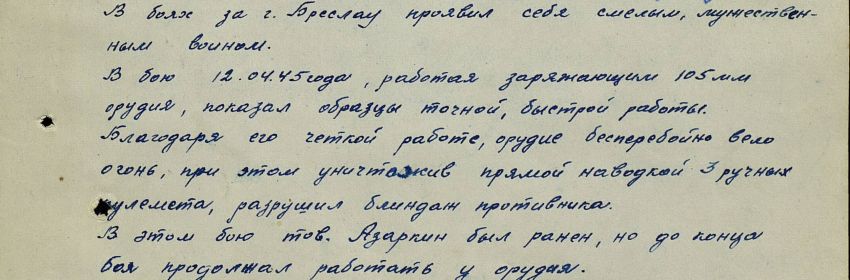 В боях за г. Бреслау проявил себя смелым, мужествен-
ным воином.
В бою 12.04.45 года, работая заряжающим 105 мм
орудия, показал образцы точной, быстрой работы.
Благодаря его четкой работе, орудие бесперебойно вело
огонь, при этом уничтожив прямой наводкой 3 ручных
пулемета, разрушил блиндаж противника.
В этом бою тов. Азаркин был ранен, но до конца
боя продолжал работать у орудия.